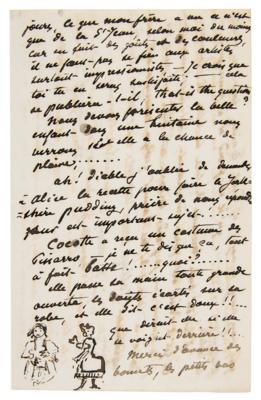 jours, ce que mon frère a vu ce n'est
que de la St Jean, selon moi du moins
car en fait des goûts et des couleurs,
il ne faut pas se fier aux artistes
surtout impressionnistes — Je crois que
toi tu en seras satisfaite! — cela
se publiera-t-il! That is the question
Nous devons présenter la belle?
enfant dans une huitaine nous
verrons si elle a la chance de
plaire,......
ah! Diable j'oublie de demander
à Alice la recette pour faire le York-
shire pudding, prière de nous
sujet.......
Cocotte a reçu un costume de
Pissarro — je ne te dis que ça, tout
à fait batte!......quoi??.....
elle passe la main toute grande
ouverte, les doigts écartés sur sa
robe, et elle dit c'est doux!!...
que dirait-on si elle
le voyait derrière!!...
Merci d'avance des
bonnets, les petits bas